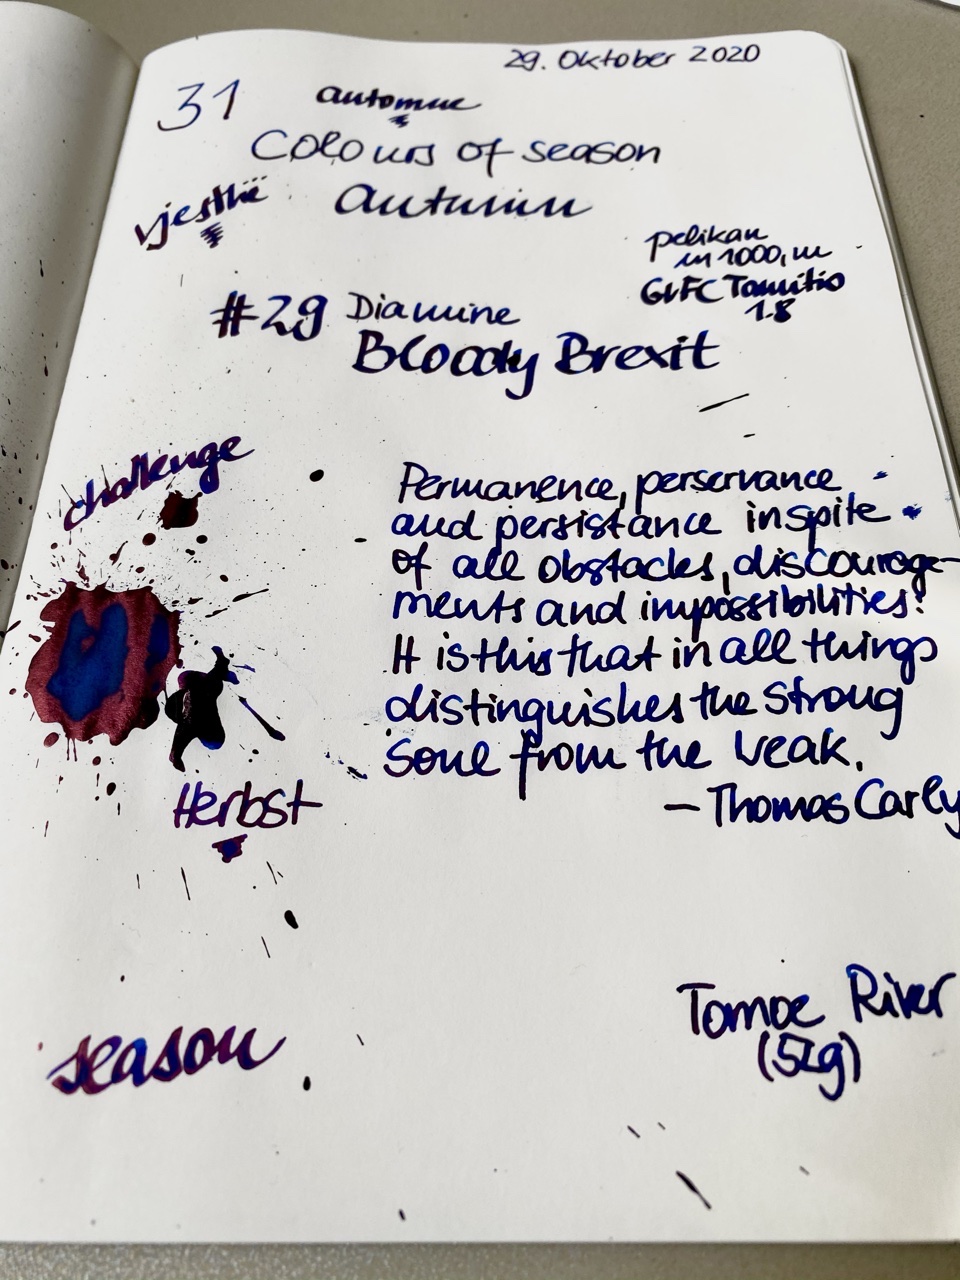 29. Oktober 2020
31
automne
Colours of season
vjeshtë
Autumn
pelikan
m1000, m
GvFC Tamitio
1.8
#29 Diamine
Bloody Brexit
challenge
Permanence, perservance
and persistance inspite
of all obstacles, discourage-
ments and impossibilities!
It is this that in all things
distinguishes the strong
soul from the weak.
— Thomas Carly
Herbst
Tomoe River
(52g)
season